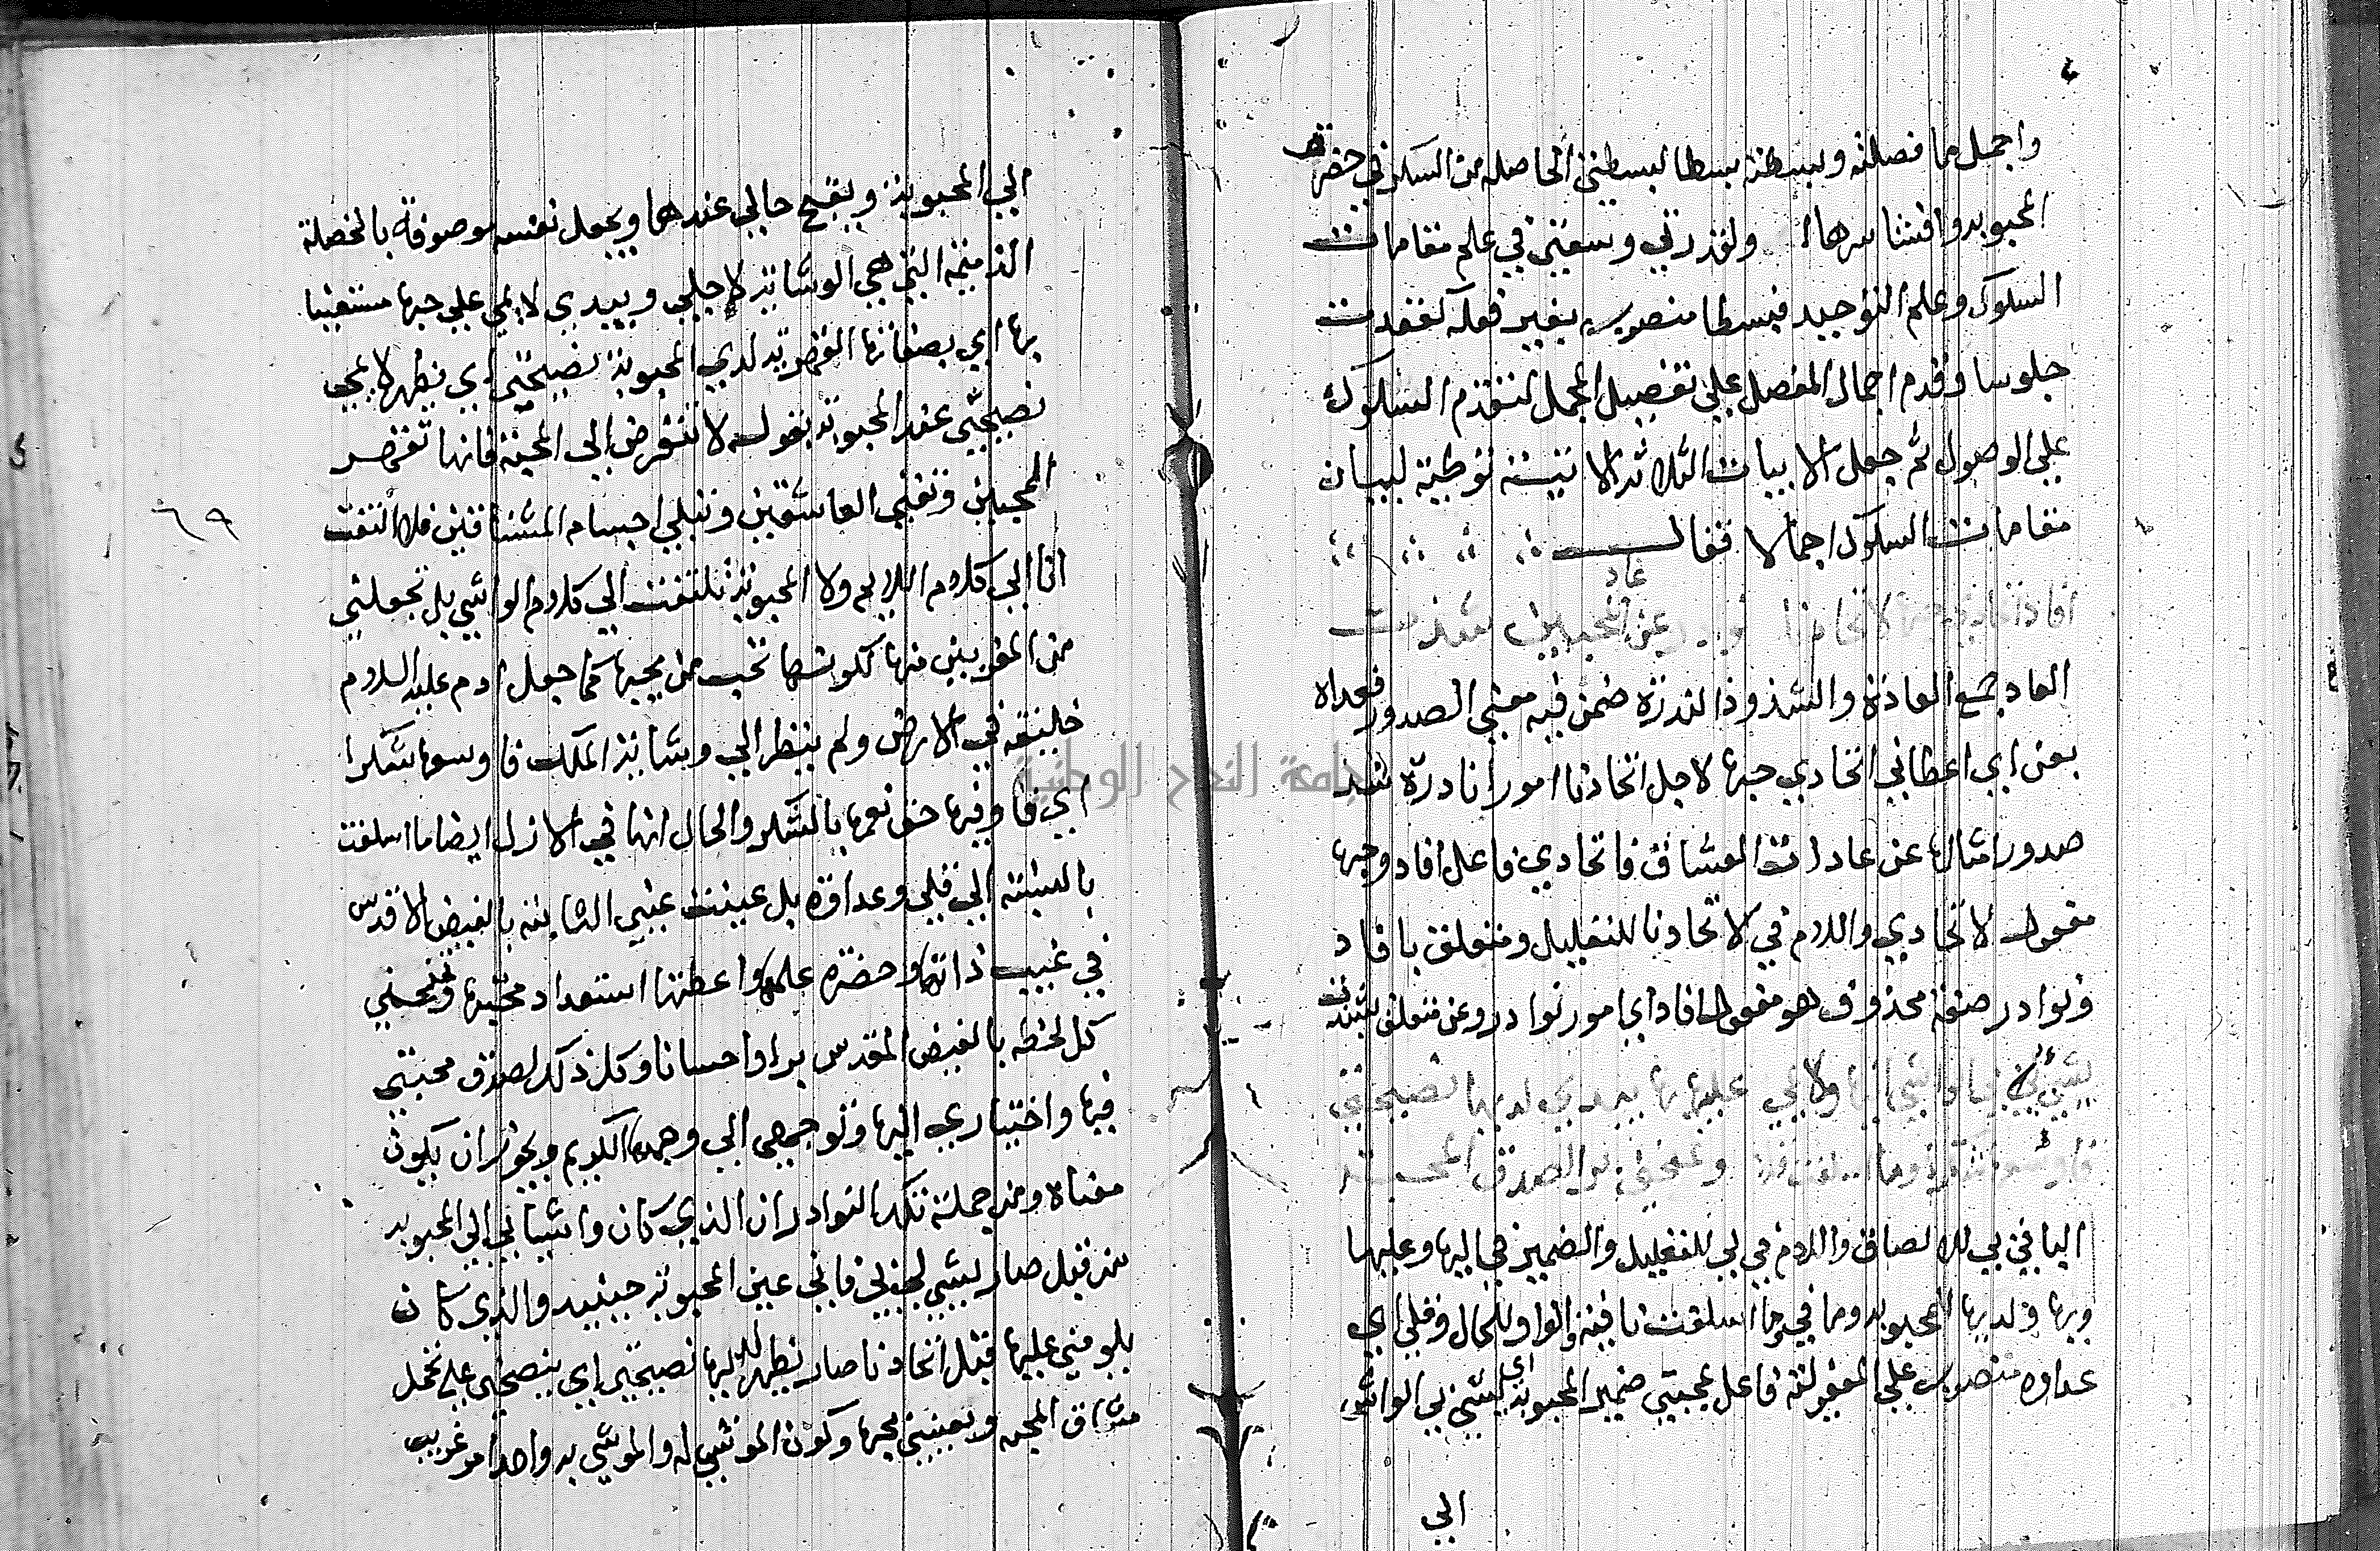 واجمل ما فصلته وبسطته بسطا لبسطتي الحاصله من السكر في حضرة
المحبوبه وافشا سرها ولقدرتي وسعتي في علم مقامات
السلوك وعلم التوحيد فبسطا منصوب بغير فعله كقعدت
جلوسا وقدم اجمال المفصل علي تفصيل المجمل لتقدم السلوك
علي الوصول ثم جعل الابيات الثلاثه الاتيته توطية لبيان
مقامات السلوك اجمالا فقال
افاد اتخاذي حبها لاتخاذنا نوادر عن عاد المحبين شذت
العاد جمع العادة والشذوذ الندرة ضمن فيه معني الصدور فعداه
بعن اي اعطاني اتخاذي حبها لاجل اتخاذنا امورا نادرة شذ
صدور امثالها عن عادات العشاق فاتخاذي فاعل افاد وحبها
مفعول لاتخاذي واللام في لاتخاذنا للتعليل ومتعلق بافاد
ونوادر صفة محذوف هو مفعول افاد اي امور نوادر وعن متعلق بشذت
يشي لي بي واشي اليها ولايمي عليها بها يبدي لديها نصيحتي
فاوسعها شكرا وما اسلفت قلا وتمنحني برا لصدق المحبة
اليا في بي للالصاق واللام في لي للتعليل والضمير في اليها وعليها
وبها ولديها للمحبوبه وما في وما اسلفت نافية والواو للحال وقلي اي
عداوة منصوب علي المفعولته فاعل لمحبتي ضمير المحبوبة اي يشي بي الواشي
الي
الي المحبوبة ويقبح حالي عندها ويجعل نفسه موصوفة بالخصلة
الذميمه التي هي الوشاية لاجلي ويبدي لايمي علي حبها مستعينا
بها اي بصفاتها القهرية لدي المحبوبة نصيحتي اي يظهر لايمي
نصيحتي عند المحبوبة بقوله لا تتعرض الي المحبة فانها تقهر
المحبين وتفني العاشقين وتبلي اجسام المشتاقين فلا التفت
٦٩
انا الي كلام اللايم ولا المحبوبة تلتفت الي كلام الواشي بل تجعلني
من المقربين منها لكونها تحب من يحبها كما جعل ادم عليه السلام
خليفة في الارض ولم ينظر الي وشاية الملك فاوسعها شكرا
اي فاوفيها حق نعمها بالشكر والحال انها في الازل ايضا ما اسلفت
بالنسبة الي قلي وعداوة بل عينت عيني الثابتة بالفيض الاقدس
في غيب ذاتها وحضرة علمها واعطتها استعداد محبتها وتمنحني
كل لحظة بالفيض المقدس برا واحسانا وكل ذلك لصدق محبتي
فيها واختياري اليها وتوجهي الي وجهها الكريم ويجوز ان يكون
معناه ومن جملة تلك النوادر ان الذي كان واشيا بي الي المحبوبه
من قبل صار يشي لي بي فاني عين المحبوبة حينيذ والذي كان
يلومني عليها قبل اتخاذنا صار يظهر لديها نصيحتي اي ينصحني علي تحمل
مشاق المحبه ويعينني بحبها وكون الموشي له والموشي به واحدا امر غريب